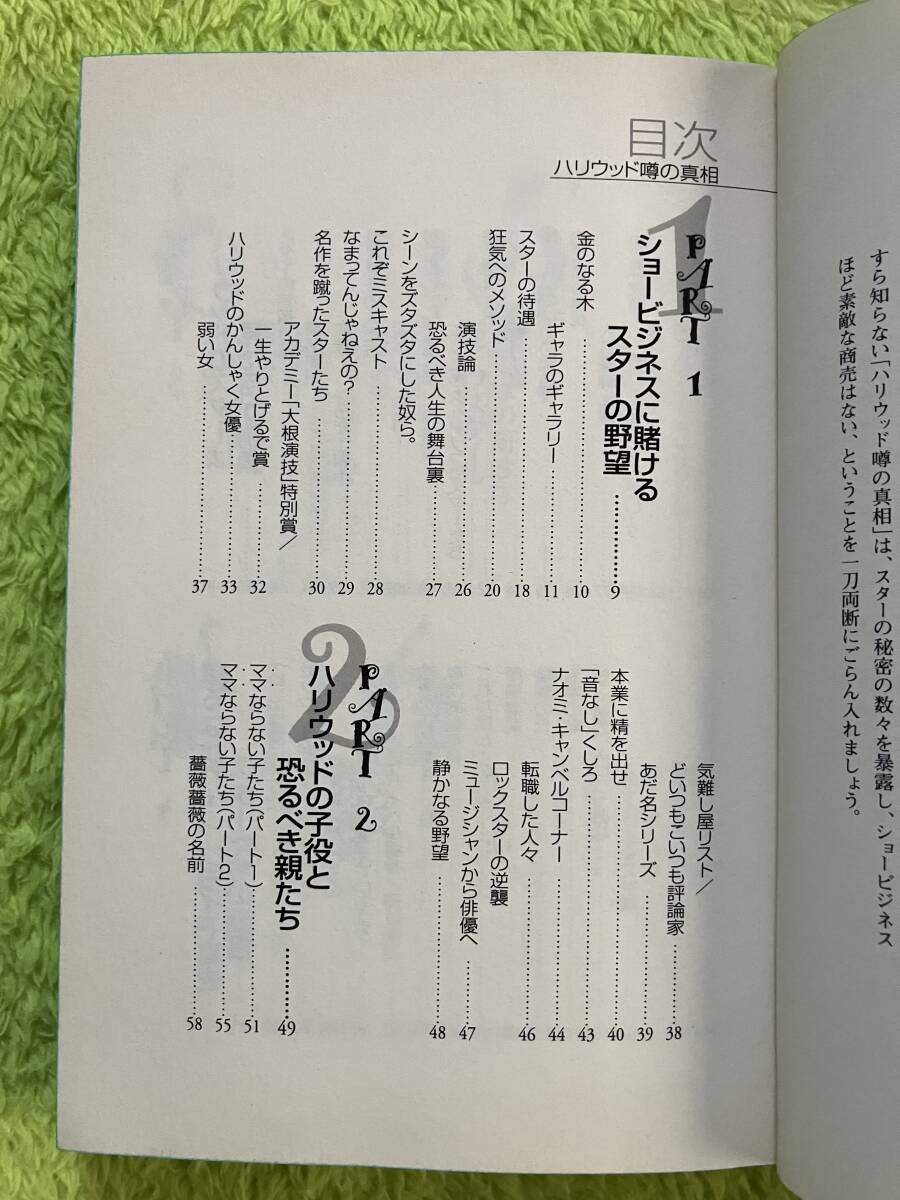 すら知らない「ハリウッド噂の真相」は、スターの秘密の数々を暴露し、ショービジネス
ほど素敵な商売はない、ということを一刀両断にごらん入れましょう。
目次
ハリウッド噂の真相
1
PART 1
ショービジネスに賭ける
スターの野望…………9
金のなる木…………10
ギャラのギャラリー…………11
スターの待遇…………18
狂気へのメソッド…………20
演技論…………26
恐るべき人生の舞台裏…………27
シーンをズタズタにした奴ら。
これぞミスキャスト…………28
なまってんじゃねえの?…………29
名作を蹴ったスターたち…………30
アカデミー「大根演技」特別賞/
一生やりとげるで賞…………32
ハリウッドのかんしゃく女優…………33
弱い女…………37
気難し屋リスト/
どいつもこいつも評論家…………38
あだ名シリーズ…………39
本業に精を出せ…………40
「音なし」くしろ…………43
ナオミ・キャンベルコーナー…………44
転職した人々…………46
ロックスターの逆襲
ミュージシャンから俳優へ…………47
静かなる野望…………48
2
PART 2
ハリウッドの子役と
恐るべき親たち…………49
ママならない子たち(パート1)…………51
ママならない子たち(パート2)…………55
薔薇薔薇の名前…………58